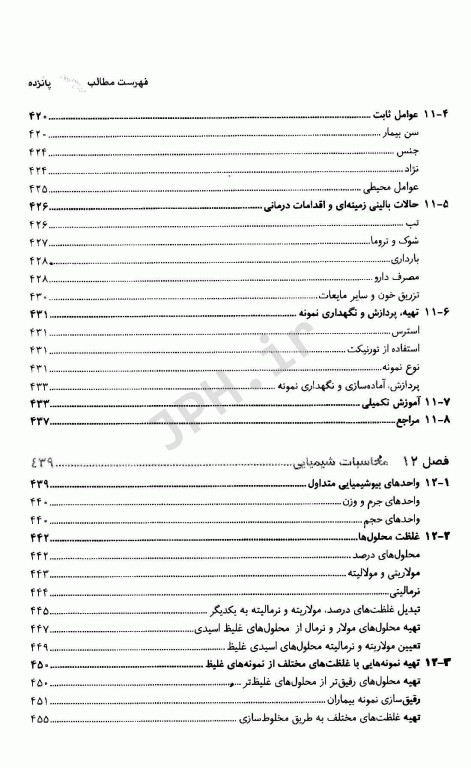 فهرست مطالب پانزده
۱۱-۴ عوامل ثابت ۴۲۰
سن بیمار ۴۲۰
جنس ۴۲۴
نژاد ۴۲۴
عوامل محیطی ۴۲۵
۱۱-۵ حالات بالینی زمینه‌ای و اقدامات درمانی ۴۲۶
تب ۴۲۶
شوک و تروما ۴۲۷
بارداری ۴۲۸
مصرف دارو ۴۲۸
تزریق خون و سایر مایعات ۴۳۰
۱۱-۶ تهیه، پردازش و نگهداری نمونه ۴۳۱
استرس ۴۳۱
استفاده از تورنیکت ۴۳۱
نوع نمونه ۴۳۱
پردازش، آماده‌سازی و نگهداری نمونه ۴۳۳
۱۱-۷ آموزش تکمیلی ۴۳۳
۱۱-۸ مراجع ۴۳۷
JPH.ir
فصل ۱۲ محاسبات شیمیایی ۴۳۹
۱۲-۱ واحدهای بیوشیمیایی متداول ۴۳۹
واحدهای جرم و وزن ۴۴۰
واحدهای حجم ۴۴۰
۱۲-۲ غلظت محلول‌ها ۴۴۲
محلول‌های درصد ۴۴۲
مولاریتی و مولالیته ۴۴۳
نرمالیتی ۴۴۴
تبدیل غلظت‌های درصد، مولاریته و نرمالیته به یکدیگر ۴۴۵
تهیه محلول‌های مولار و نرمال از محلول‌های غلیظ اسیدی ۴۴۷
تعیین مولاریته و نرمالیته محلول‌های اسیدی غلیظ ۴۴۹
۱۲-۳ تهیه نمونه‌هایی با غلظت‌های مختلف از نمونه‌های غلیظ ۴۵۰
تهیه محلول‌های رقیق‌تر از محلول‌های غلیظ‌تر ۴۵۰
رقیق‌سازی نمونه بیماران ۴۵۱
تهیه غلظت‌های مختلف به طریق مخلوط‌سازی ۴۵۵